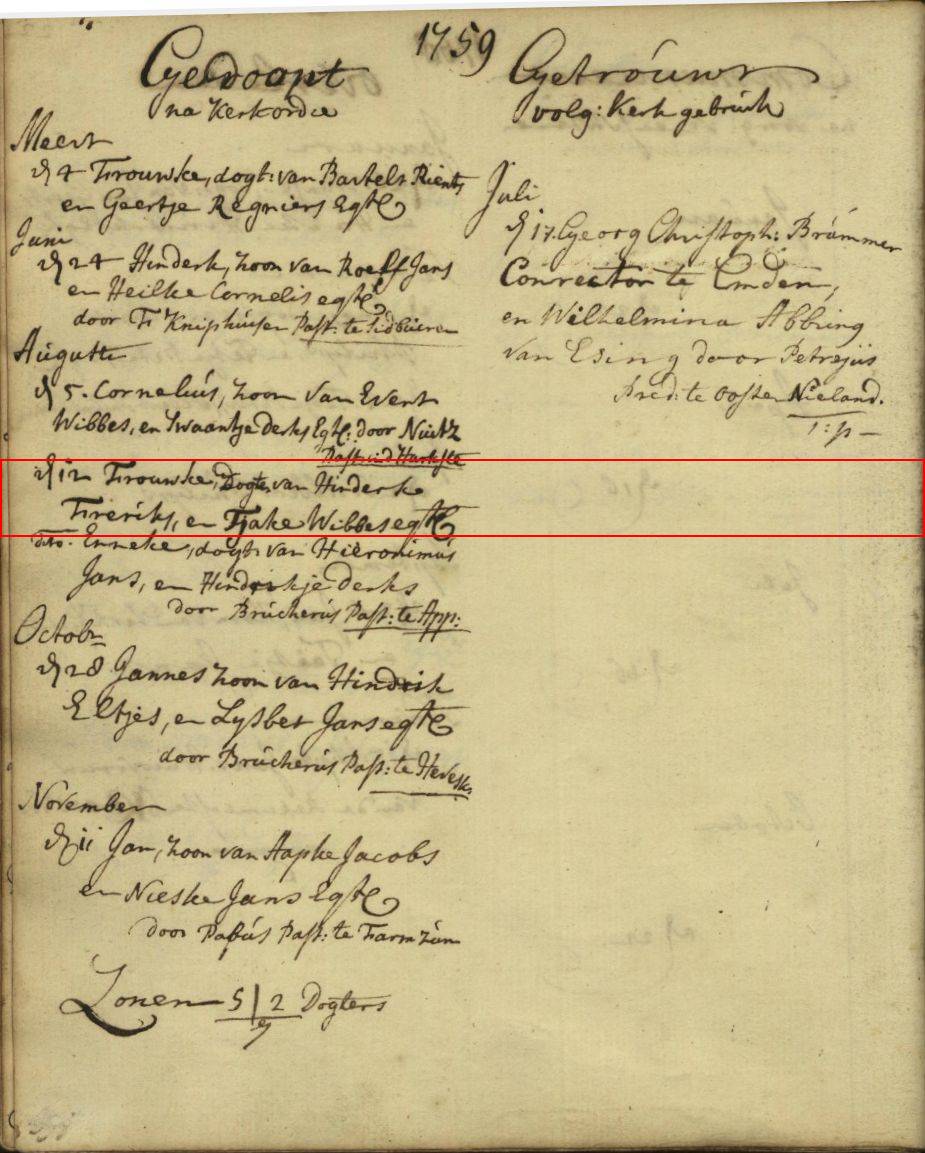 1759
Gedoopt
na Kerkordre
Meert
d 4 Trouwke, dogt: van Bartelt Rients
en Geertje Regniers Egtel
Juni
d 24 Hinderk, zoon van Roelf Jans
en Heilke Cornelis egtel
door T: Kniphuisen Past: te Sidbüren
Augustus
d 5. Cornelius, zoon van Evert
Wibbes, en Swaantje derks Egtel: door
Past: in d' Harkste
d 12 Trouwke, Dogt. van Hinderk
Freriks, en Tjake Wibbes egtel
dito. Enneke, dogt: van Hieronimus
Jans, en Hindrikje derks
door Brucherus Past: te App:
Octobr
d 28 Jannes zoon van Hindrik
Eltjes, en Lysbet Jans egtel
door Brucherus Past: te Hevesk:
November
d 11 Jan, zoon van Aapke Jacobs
en Nieske Jans Egtel
door Past: te Farmzum
Zonen 5 | 2 Dogters
7
Getrouwt
volg: Kerk gebruik
Juli
d 17. Georg Christoph: Brammer
Conrector te Emden,
en Wilhelmina Abbring
van Esing door Petrejus
Pred: te Ooster Nieland.
1: p —